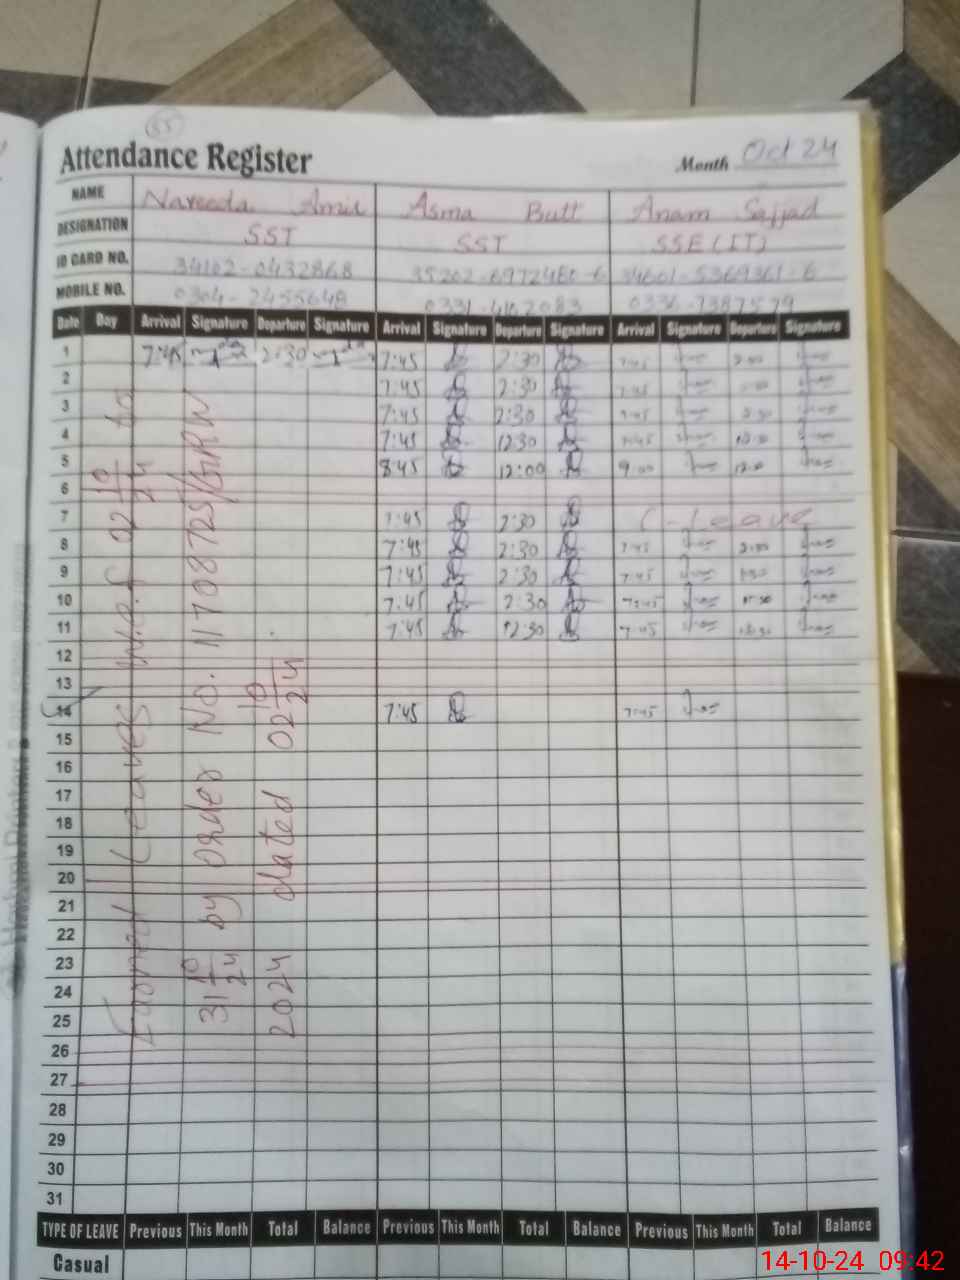 55
Attendance Register
Month Oct 24
NAME Naveeda Amir Asma Butt Anam Sajjad
DESIGNATION SST SST SSE (IT)
ID CARD NO. 34102-0432868 35202-6972480-6 34601-5369361-6
MOBILE NO. 0304-2455648 0331-4102083 0336-7387579
Date Day Arrival Signature Departure Signature Arrival Signature Departure Signature Arrival Signature Departure Signature
1 7:45 2:30 7:45 2:30 7:45
2 7:45 2:30 7:45
3 7:45 2:30 7:45
4 7:45 12:30 7:45
5 8:45 12:00 9:00
6
7 7:45 2:30 C-Leave
8 7:45 2:30 7:45
9 7:45 2:30 7:45
10 7:45 2:30 7:45
11 7:45 12:30 7:45
12
13
14 7:45 7:45
15
16
17
18
19
20
21
22
23
24
25
26
27
28
29
30
31
Leaves w.e.f 02 10/24 to
31 10/24 by order No. 1170 8725/GRW
2024 dated 02 10/24
TYPE OF LEAVE Previous This Month Total Balance Previous This Month Total Balance Previous This Month Total Balance
Casual
14-10-24 09:42